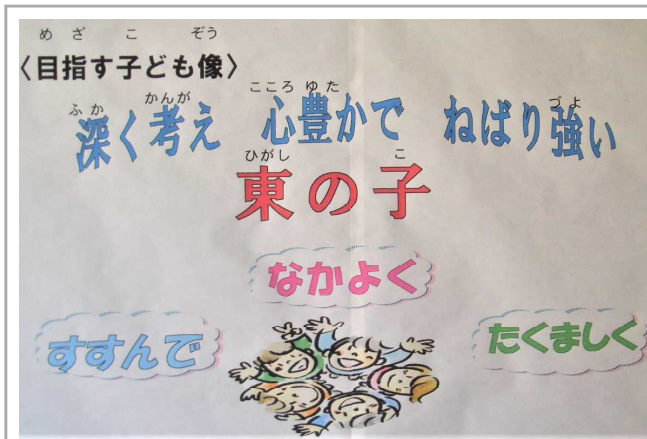 めざ こ ぞう
〈目指す子ども像〉
ふか かんが こころ ゆた づよ
深く考え 心豊かで ねばり強い
ひがし こ
東の子
なかよく
すすんで たくましく